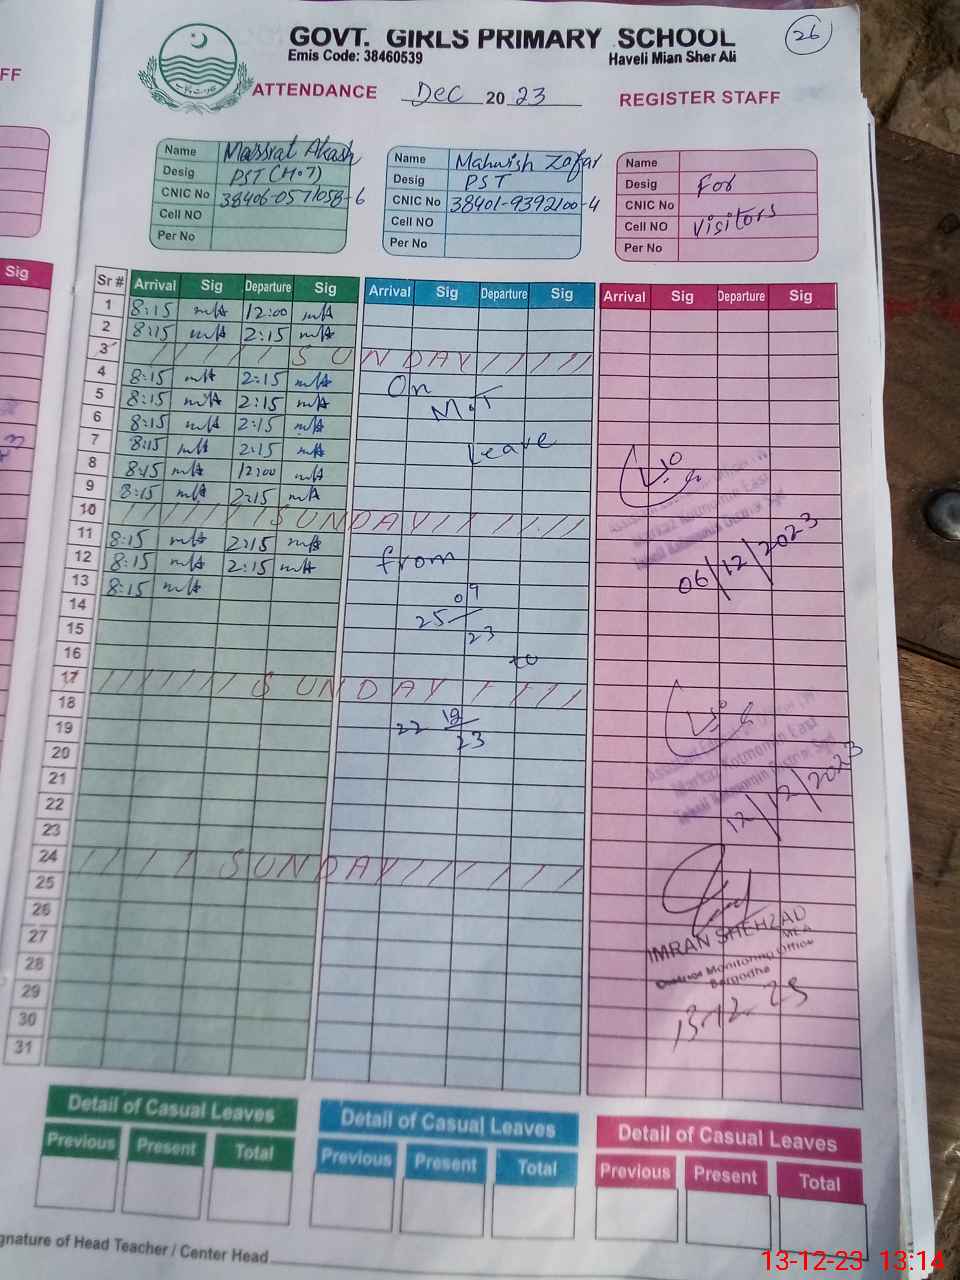 26
GOVT. GIRLS PRIMARY SCHOOL
Emis Code: 38460539 Haveli Mian Sher Ali
FF
ATTENDANCE Dec 2023 REGISTER STAFF
Name Massrat Akash
Desig PST (H.T)
CNIC No 38406-0571058-6
Cell NO
Per No
Name Mahwish Zafar
Desig PST
CNIC No 38401-9392100-4
Cell NO
Per No
Name
Desig For
CNIC No
Cell NO visitors
Per No
Sig
Sr # Arrival Sig Departure Sig Arrival Sig Departure Sig Arrival Sig Departure Sig
1 8:15 mA 12:00 mA
2 8:15 mA 2:15 mA
3 SUNDAY
4 8:15 mA 2:15 mA On
5 8:15 mA 2:15 mA M.T
6 8:15 mA 2:15 mA
7 8:15 mA 2:15 mA Leave
8 8:15 mA 12:00 mA
9 8:15 mA 2:15 mA
10 SUNDAY
11 8:15 mA 2:15 mA
12 8:15 mA 2:15 mA from
13 8:15 mA 06/12/2023
14 09
15 25 23
16 to
17 SUNDAY
18
19 22 12 23
20
21
22 12/12/2023
23
24 SUNDAY
25
26
27 IMRAN SHEHZAD
28 MEA
29 District Monitoring Office
30 Sargodha
31 13-12-23
Detail of Casual Leaves Detail of Casual Leaves Detail of Casual Leaves
Previous Present Total Previous Present Total Previous Present Total
gnature of Head Teacher / Center Head
13-12-23 13:14